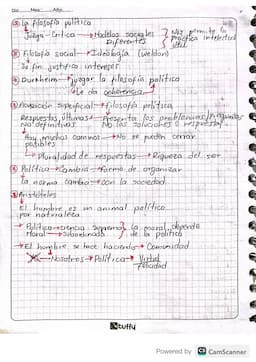 Día: Mes: Año:
① La filosofía política
→ Juzga - Critica → Modelos sociales Diferentes } Nos permite la práctica intelectual útil
② Filosofía social → Ideología (Weldon)
Su fin justifica intereses
③ Durkheim → juzgar la filosofía política
↳ Le da coherencia
④ superficial → filosofía política
Respuestas últimas → Presenta los problemas/Preguntas
No definitivas No las soluciones o respuestas
↳ Hay muchos caminos → No se pueden cerrar
posibles
↳ Pluralidad de respuestas → Riqueza del ser
⑤ Política → Cambia → forma de organizar
La norma cambia → con la sociedad
⑥ Aristóteles
↳ El hombre es un animal político
por naturaleza
→ Política → ciencia suprema } La moral depende
Moral → Subordinada de la política
→ El hombre se hace haciendo → Comunidad
Nosotros → Política → Virtud
Felicidad
tuffy
Powered by CS CamScanner